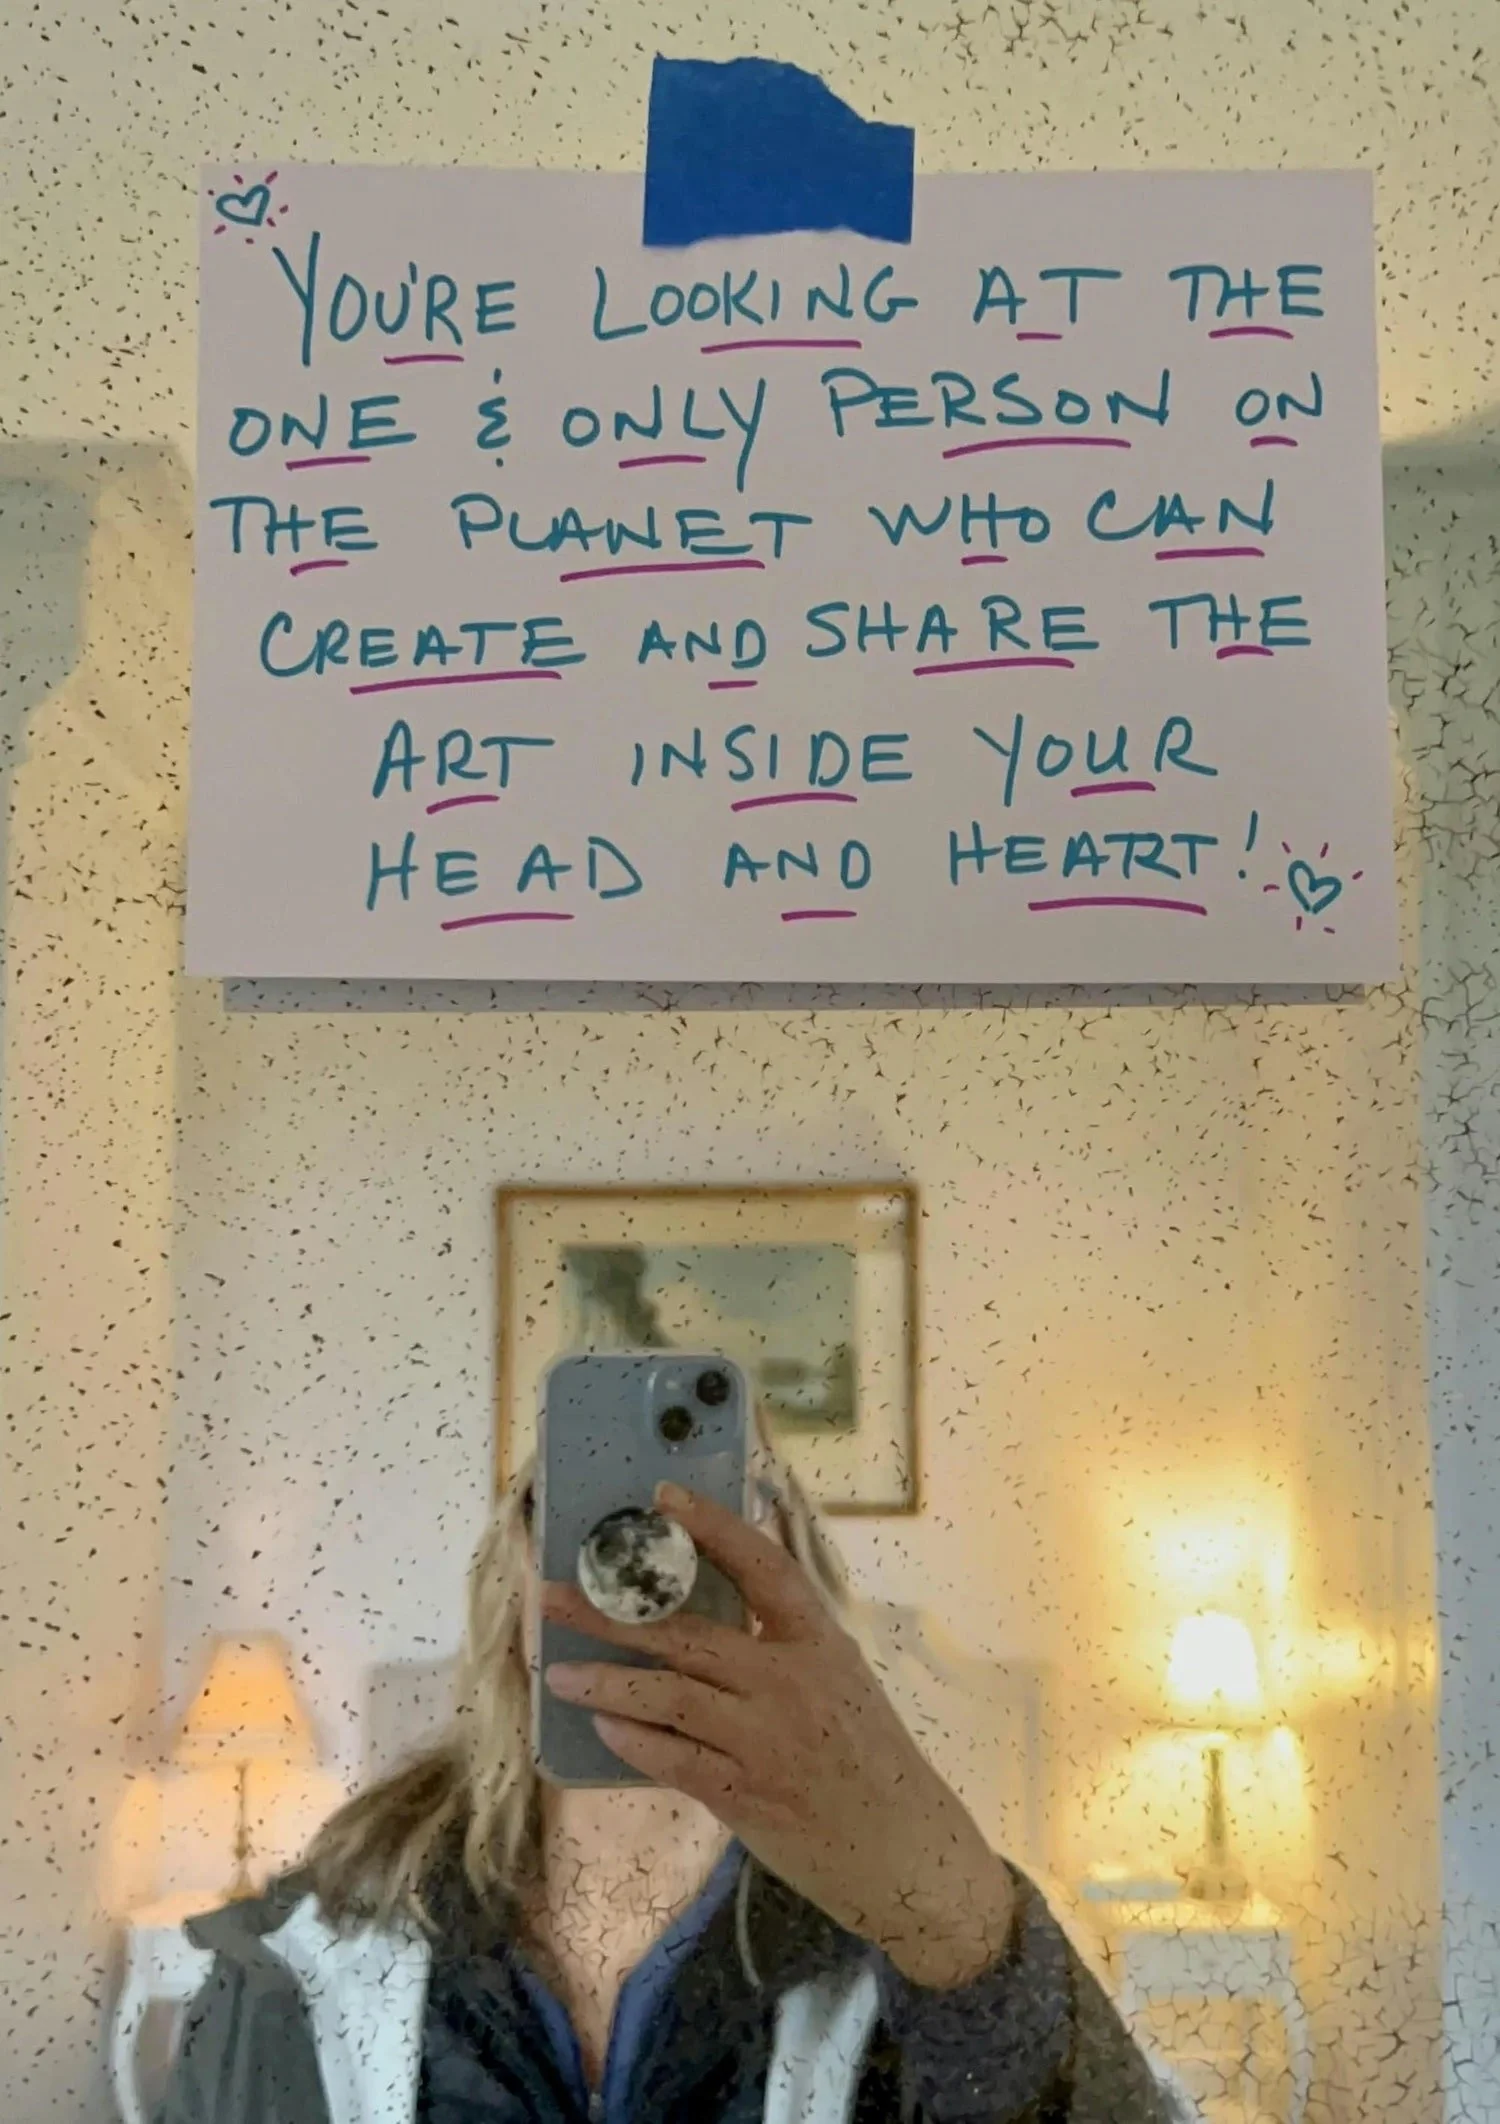 YOU'RE LOOKING AT THE
ONE & ONLY PERSON ON
THE PLANET WHO CAN
CREATE AND SHARE THE
ART INSIDE YOUR
HEAD AND HEART!